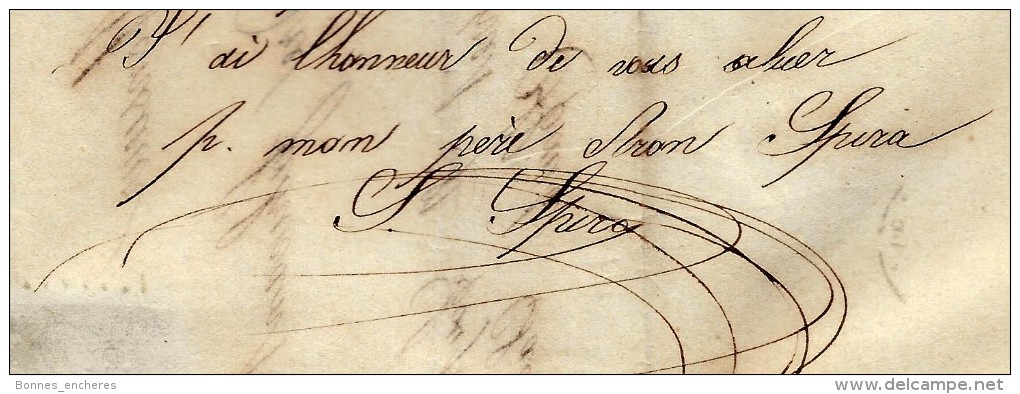 J'ai lhonneur de vous saluer
p. mon père Aron Spira
S. Spira
Bonnes_encheres
www.delcampe.net